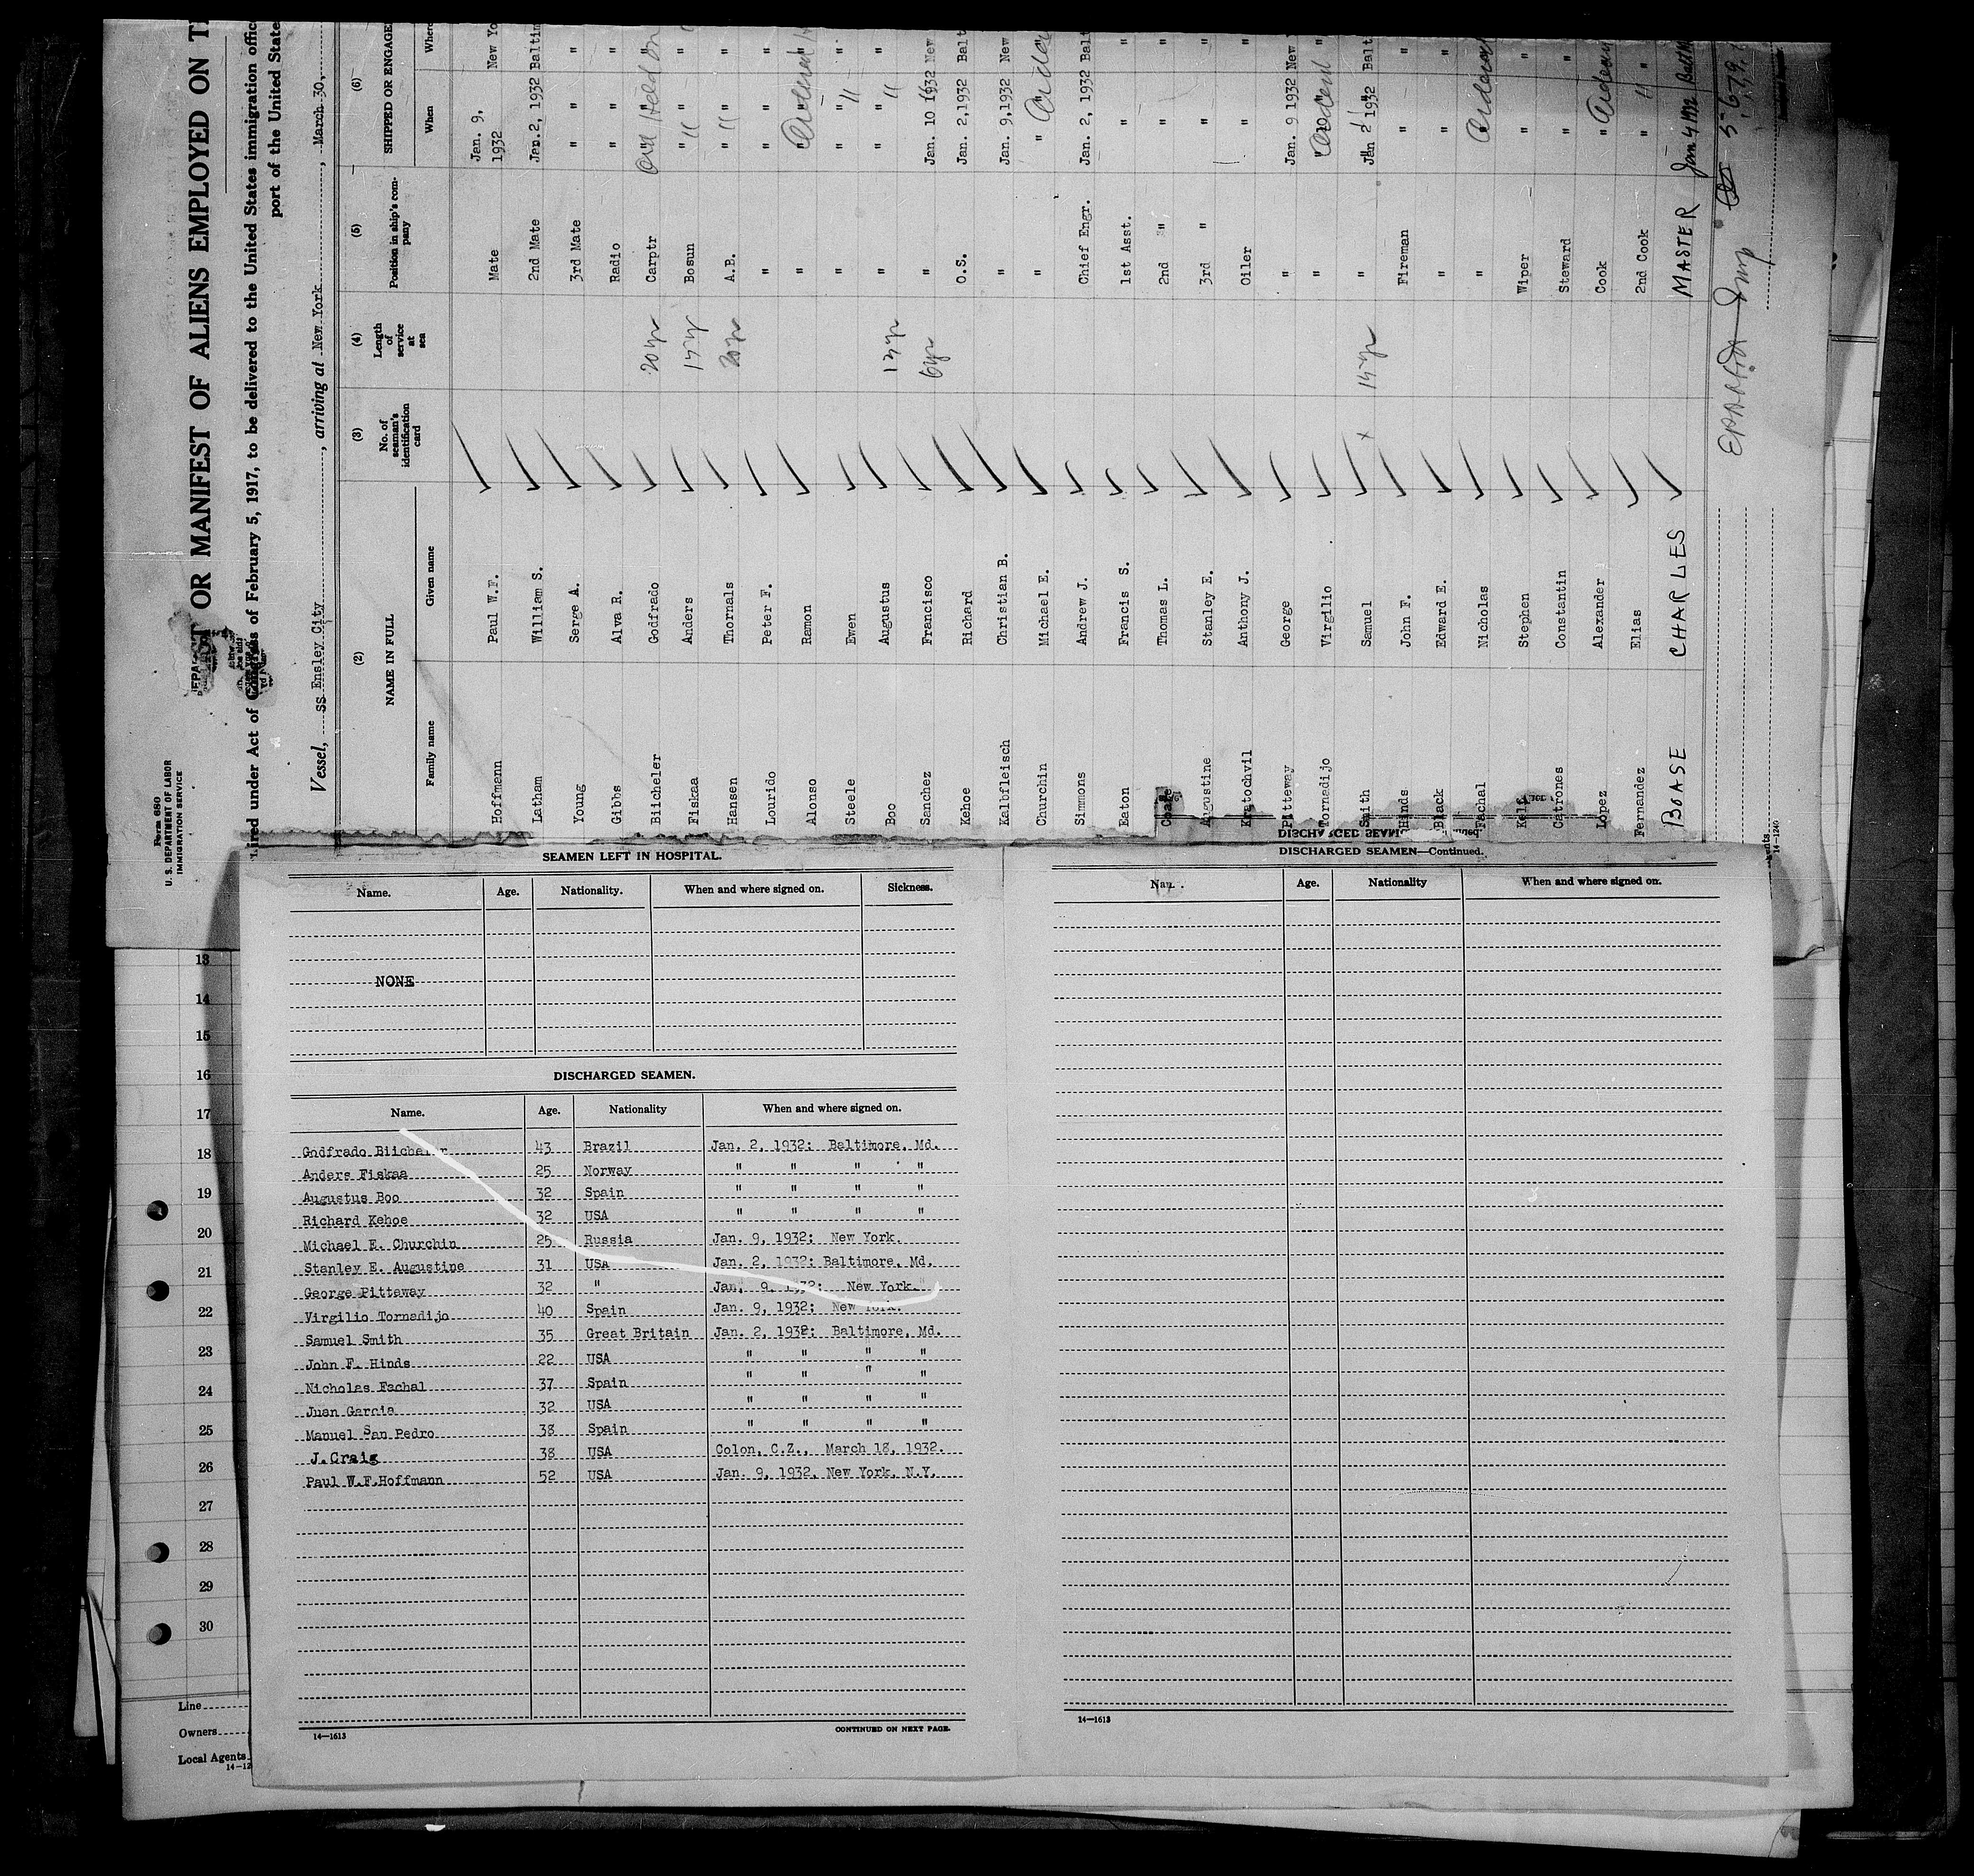 Form 680
U. S. DEPARTMENT OF LABOR
IMMIGRATION SERVICE
OR MANIFEST OF ALIENS EMPLOYED ON
under Act of Congress of February 5, 1917, to be delivered to the United States immigration
port of the United
Vessel, SS Ensley City, arriving at New York, March 30,
(2) (3) (4) (5) (6)
NAME IN FULL No. of seaman's identification card Length of service at sea Position in ship's company SHIPPED OR ENGAGED
Family name Given name When Where
Hoffmann Paul W.F. Mate Jan. 9, 1932 New
Latham William S. 2nd Mate Jan.2, 1932
Young Serge A. 3rd Mate " "
Gibbs Alva R. Radio " "
Biicheler Godfrado 20 yr Carptr " "
Fiskaa Anders 15 yr Bosun " "
Hansen Thornals 20 yr A.B. " "
Lourido Peter F. " " "
Alonso Ramon " " "
Steele Ewen " " "
Boo Augustus " " "
Sanchez Francisco 6 yr " Jan. 10 1932 New
Kehoe Richard O.S. Jan. 2,1932 Balt
Kalbfleisch Christian B. " Jan. 9,1932 New
Churchin Michael E. " "
Simmons Andrew J. Chief Engr. Jan. 2, 1932
Eaton Francis S. 1st Asst. " "
Thomas L. 2nd " " "
Augustine Stanley E. 3rd " " "
Kratochvil Anthony J. Oiler " "
Pitteway George " Jan. 9 1932 New
Tornadijo Virgilio " "
Smith Samuel x 15 yr " Jan 2 1932 Balt
Hinds John F. Fireman " "
Black Edward E. " " "
Fachal Nicholas " "
Kelf Stephen Wiper " "
Catrones Constantin Steward " "
Lopez Alexander Cook "
Fernandez Elias 2nd Cook " "
BOASE CHARLES MASTER Jan 4 1932
14—1240
13
14
15
16
17
18
19
20
21
22
23
24
25
26
27
28
29
30
Line
Owners
Local Agents
SEAMEN LEFT IN HOSPITAL.
Name. Age. Nationality. When and where signed on. Sickness.
NONE
DISCHARGED SEAMEN.
Name. Age. Nationality When and where signed on.
Godfrado Biicheler 43 Brazil Jan. 2, 1932: Baltimore, Md.
Anders Fiskaa 25 Norway " " " "
Augustus Boo 32 Spain " " " "
Richard Kehoe 32 USA " " " "
Michael E. Churchin 25 Russia Jan. 9, 1932: New York.
Stanley E. Augustine 31 USA Jan. 2, 1932: Baltimore, Md.
George Pitteway 32 " Jan. 9, 1932: New York.
Virgilio Tornadijo 40 Spain Jan. 9, 1932: New York.
Samuel Smith 35 Great Britain Jan. 2, 1932: Baltimore, Md.
John F. Hinds 22 USA " " " "
Nicholas Fachal 37 Spain " " " "
Juan Garcia 32 USA " " " "
Manuel San Pedro 38 Spain " " " "
J.Craig 38 USA Colon, C.Z., March 18, 1932.
Paul W.F.Hoffmann 52 USA Jan. 9, 1932, New York, N.Y.
14—1613 CONTINUED ON NEXT PAGE.
DISCHARGED SEAMEN—Continued.
Age. Nationality When and where signed on.
14—1613